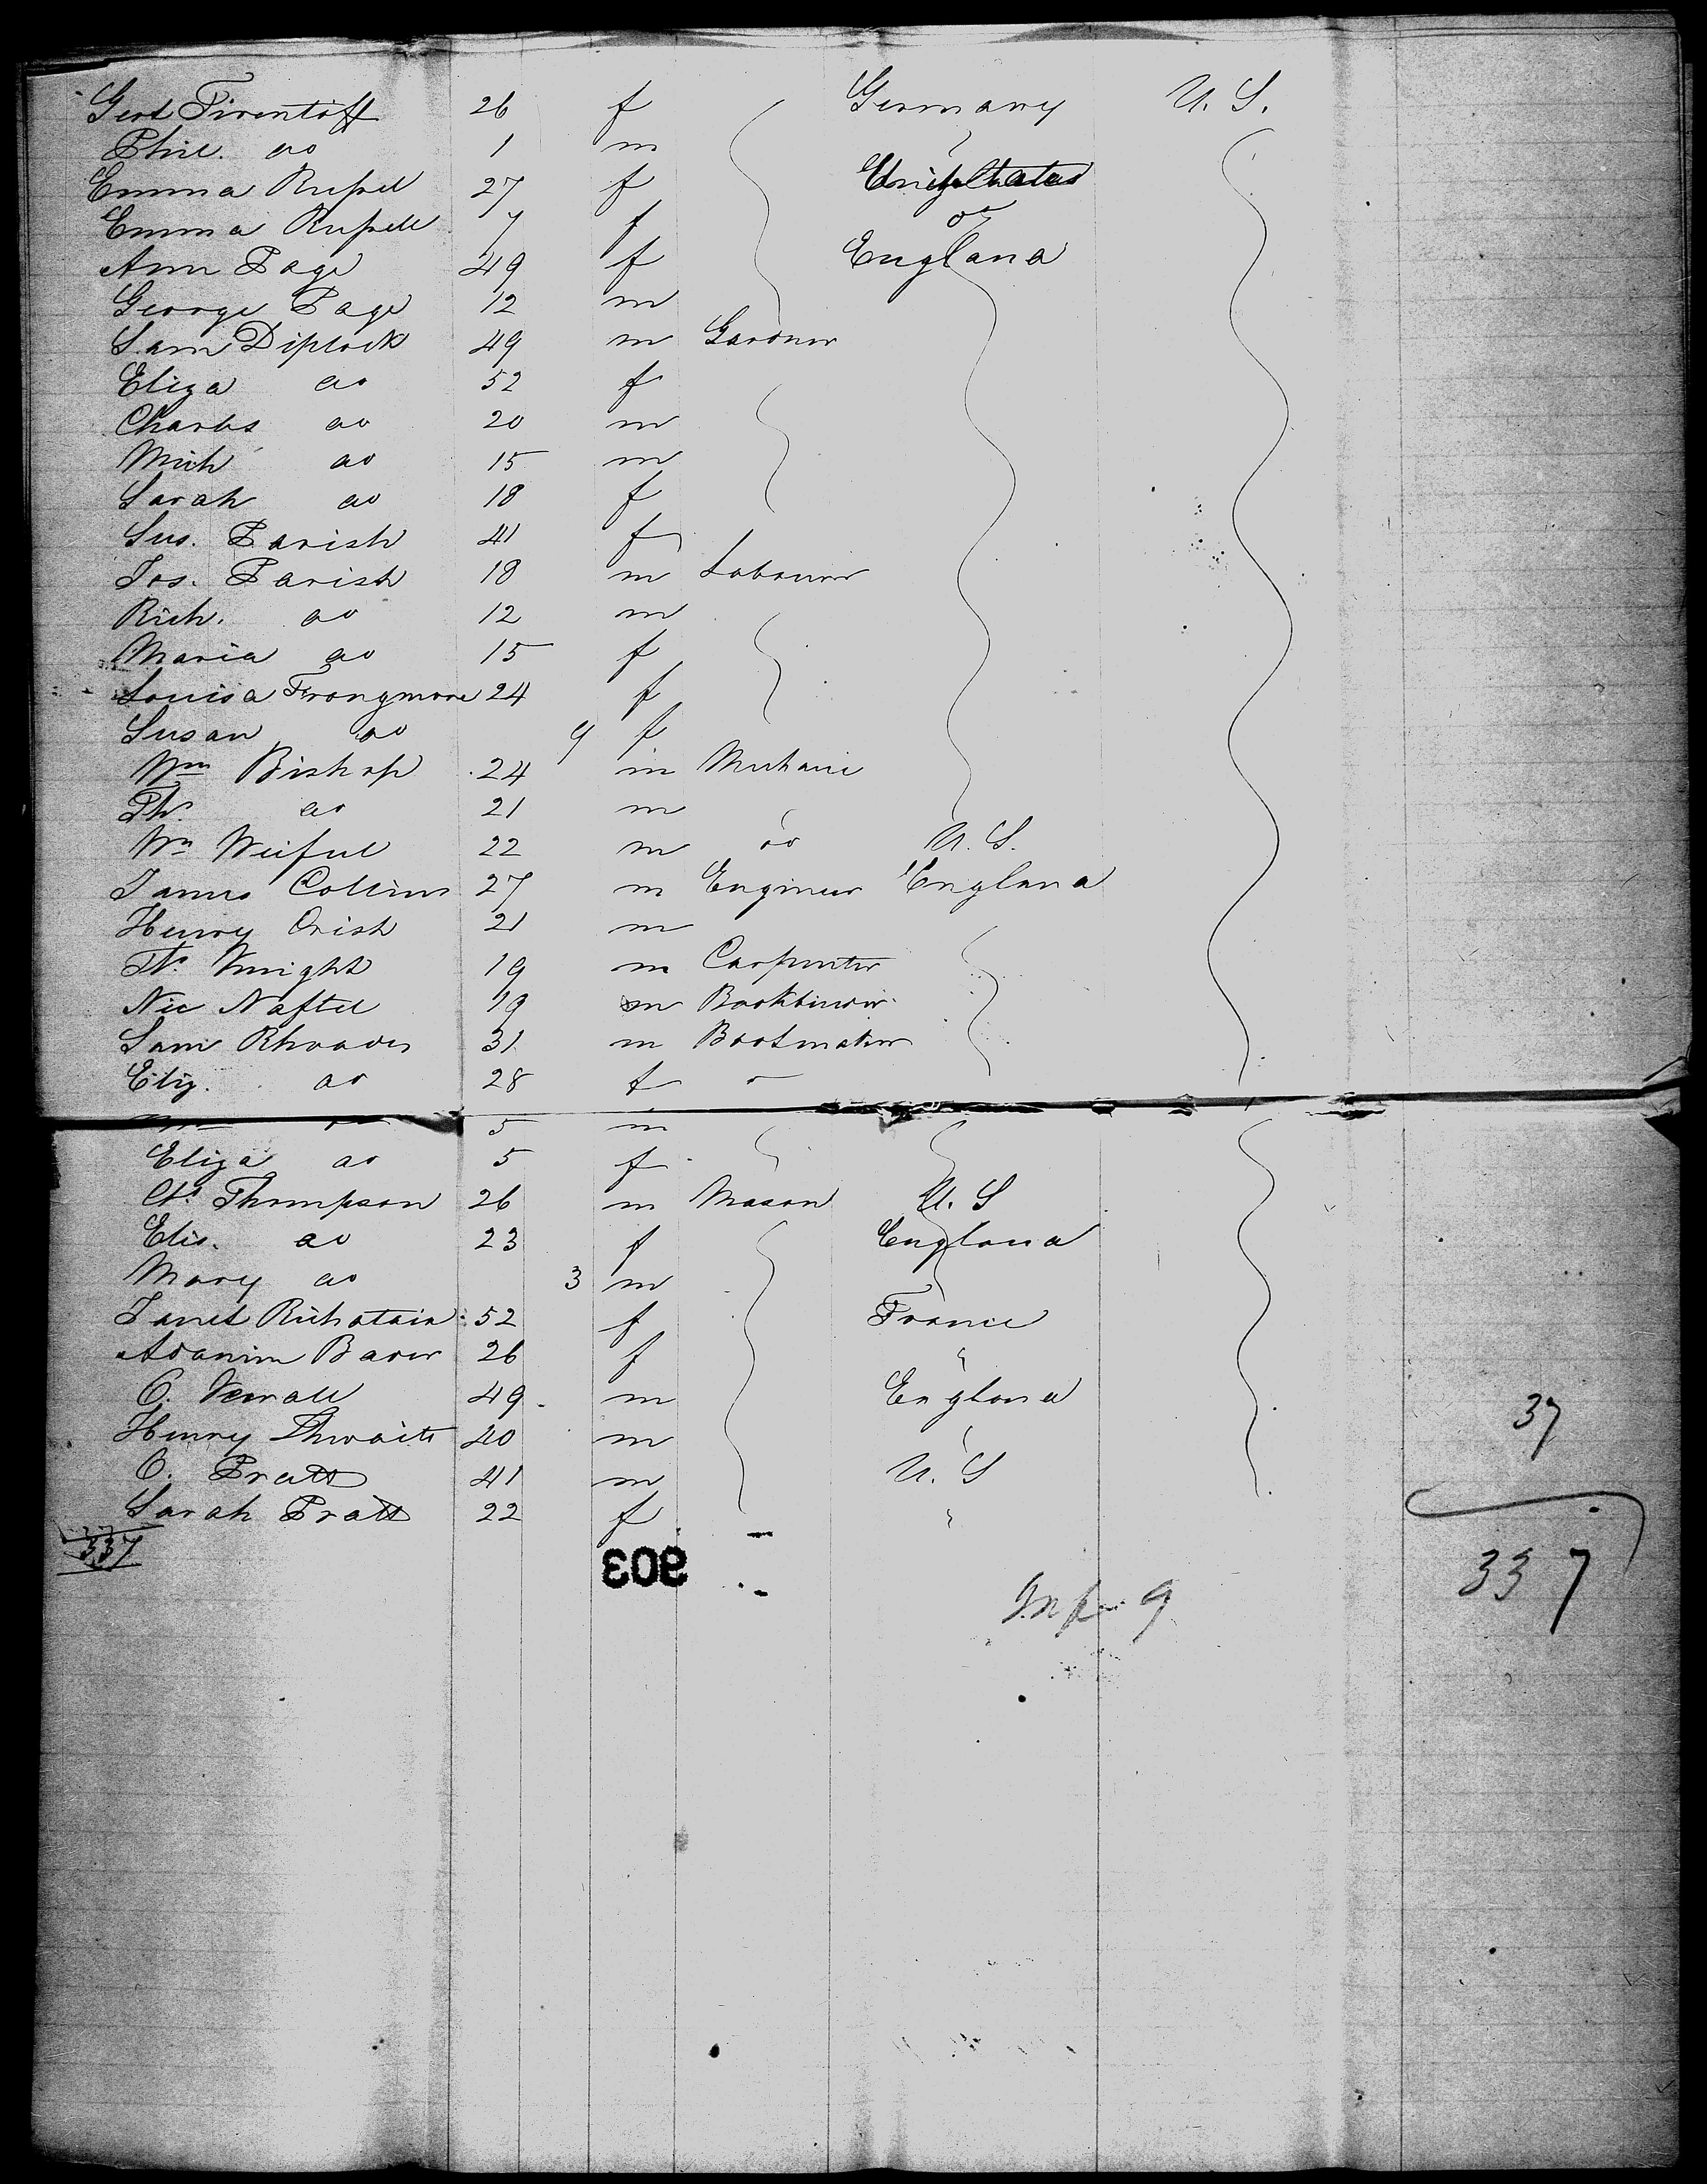 Gert Firentoff 26 f Germany U. S.
Phil. do 1 m
Emma Russel 27 f United States
Emma Russell 7 f do
Ann Page 49 f England
George Page 12 m
Sam Diplock 49 m Gardner
Eliza do 52 f
Charles do 20 m
Mich do 15 m
Sarah do 18 f
Sus. Parish 41 f
Jos. Parish 18 m Labourer
Rich. do 12 m
Maria do 15 f
Louisa Frongmore 24 f
Susan do 9 f
Wm Bishop 24 m Mechanic
Th. do 21 m
Wm 22 m do U. S.
James Collins 27 m Engineer England
Henry Orish 21 m
Th. Knight 19 m Carpenter
Nic Naftel 19 m Bookbinder
Sam Rhoades 31 m Bootmaker
Eliz. do 28 f
5 m
Eliza do 5 f
Thompson 26 m Mason U. S
Elis. do 23 f England
Mary do 3 m
Janet 52 f France
26 f
C. Verrall 49 m England
Henry Thwaits 40 m
C. Pratt 41 m U. S
Sarah Pratt 22 f "
337
37
337
903
Inf 9